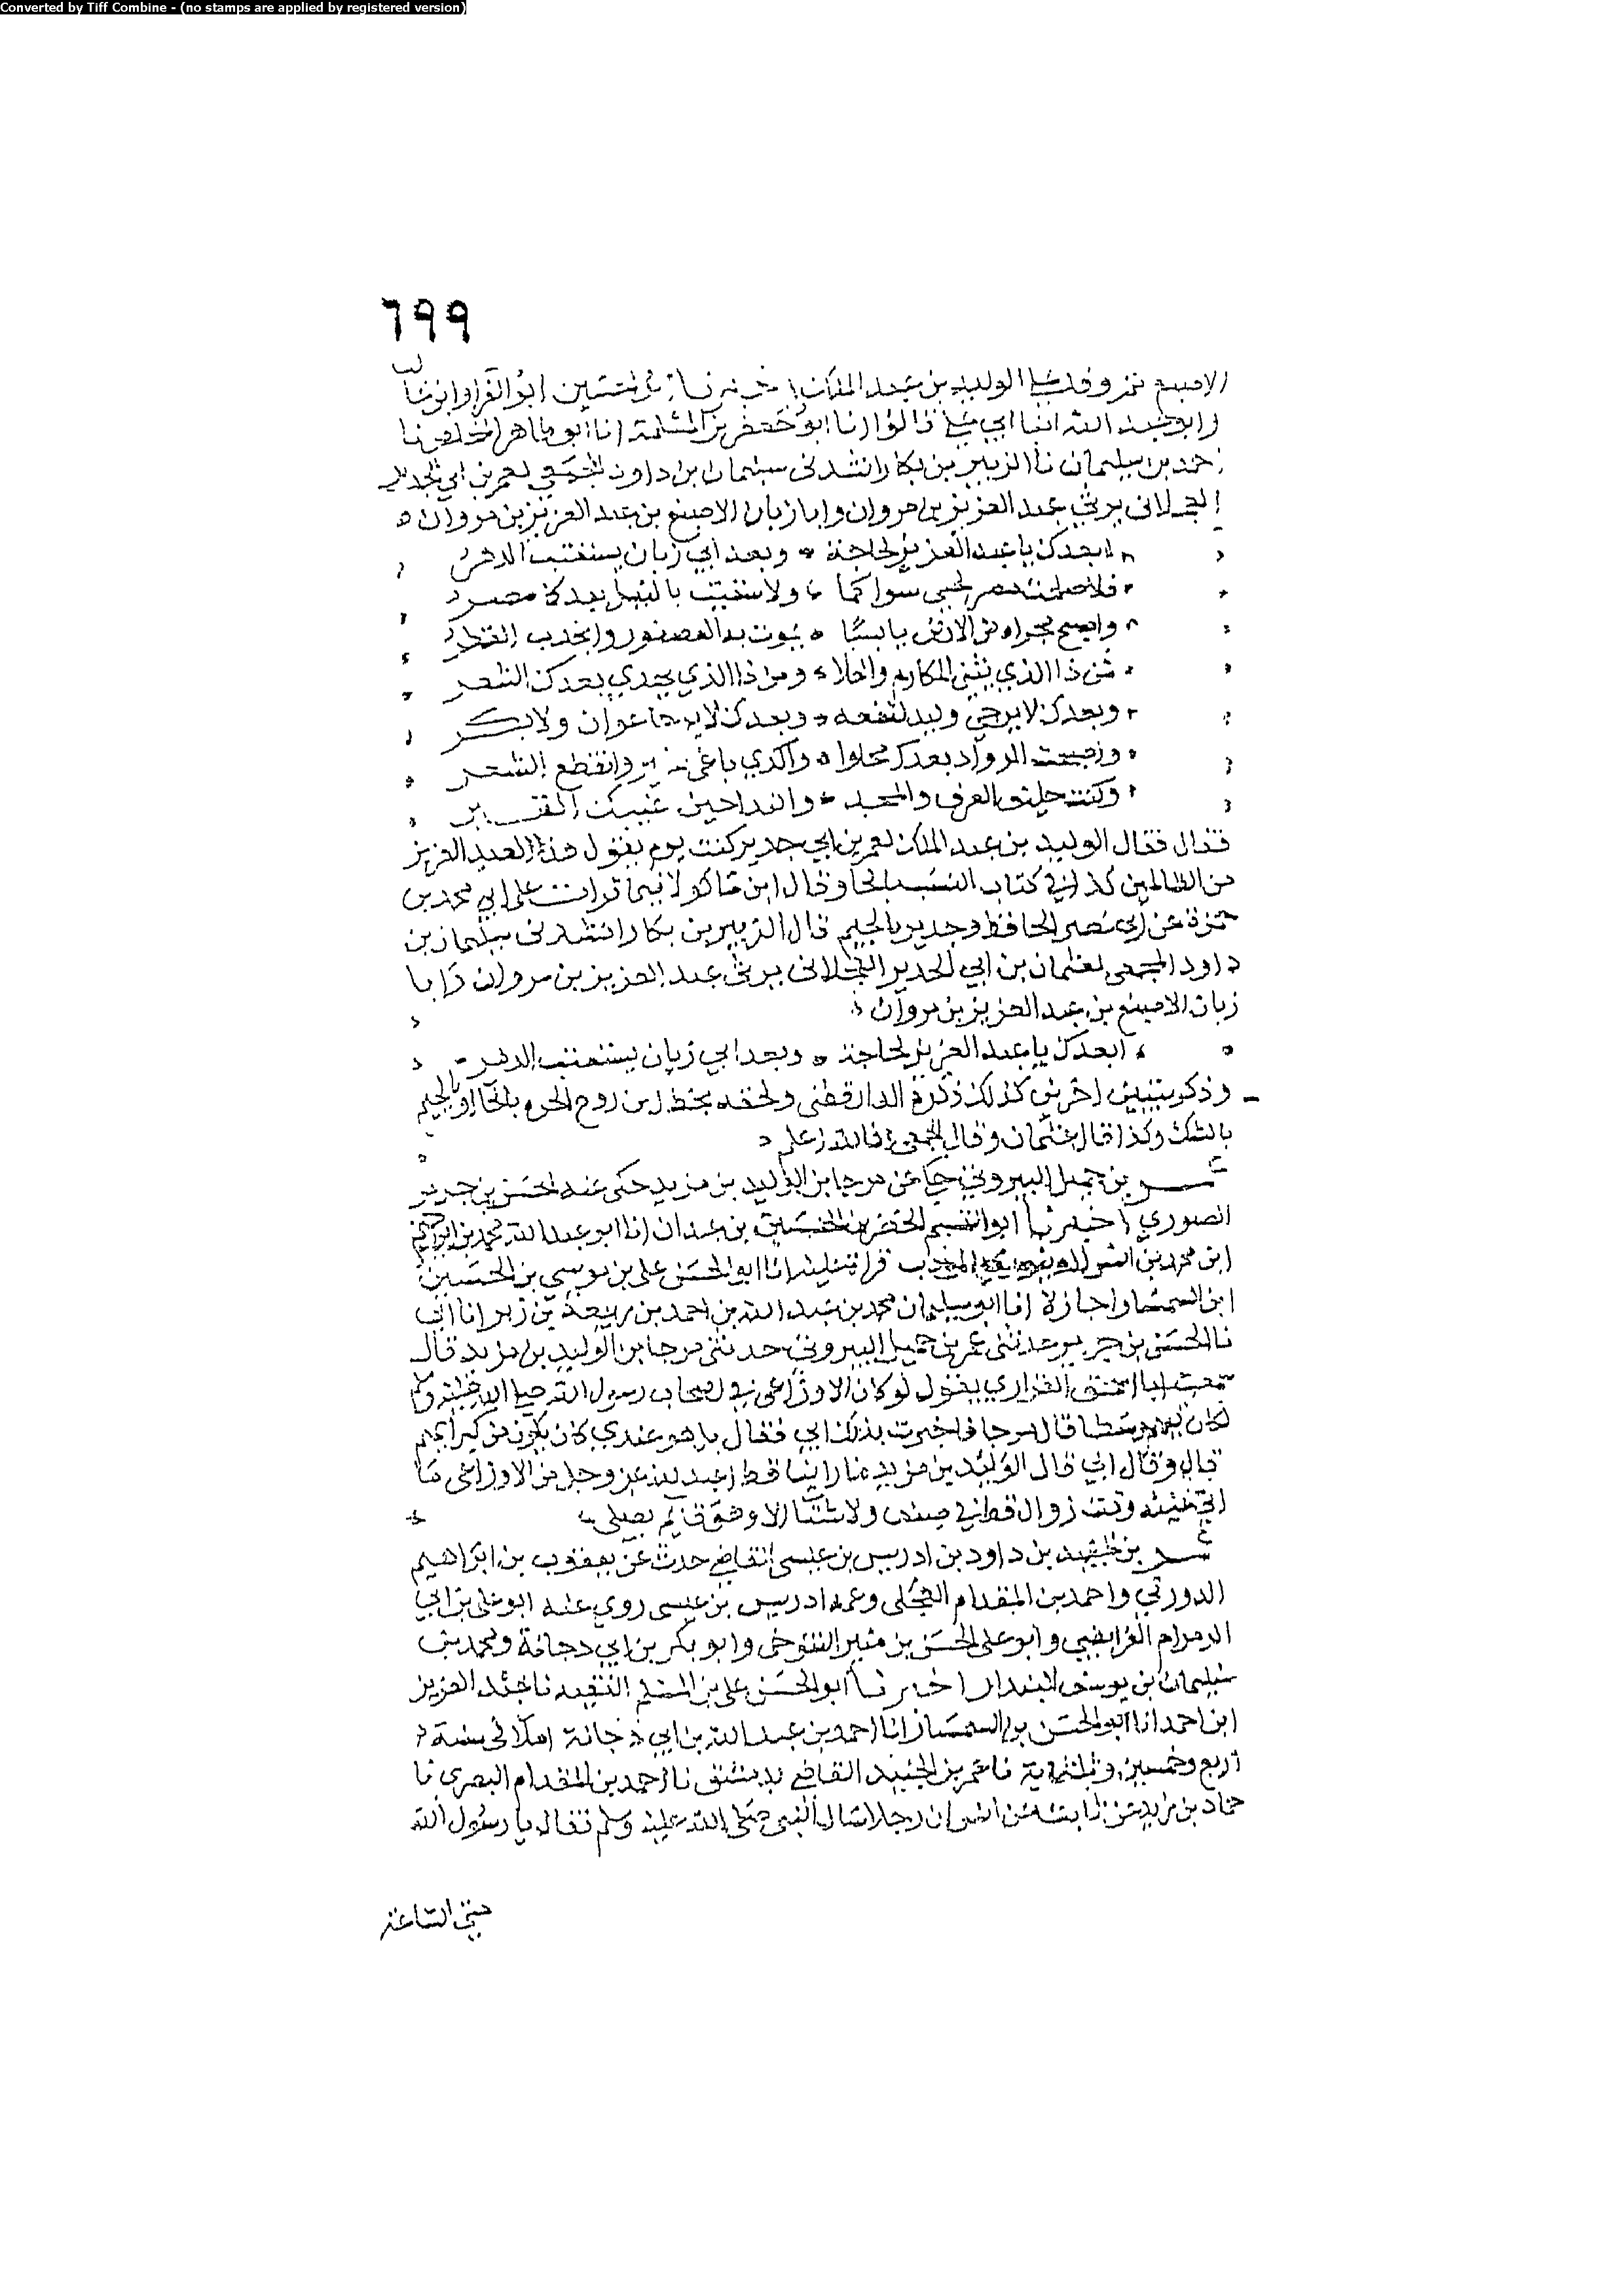 Converted by Tiff Combine - (no stamps are applied by registered version)
٦٩٩
الاصبغ ثم وفد على الوليد بن عبد الملك ابو الفراء ابو غالب
وابو عبد الله ابنا ابي علي قالوا انا ابو جعفر بن المسلمة انا ابو طاهر المخلص نا
احمد بن سليمان نا الزبير بن بكار انشدني سليمان بن داود المجمعي لعمر بن ابي الجدير
العجلاني يرثي عبد العزيز بن مروان وابا زبان الاصبغ بن عبد العزيز بن مروان
ابعدك يا عبد العزيز لحاجة وبعد ابي زبان يستعتب الدهر
فلا صلحت مصر لحي سواكما ولا سقيت بالنيل بعدكما مصر
واصبح مجراه من الارض يابسا يموت به العصفور وانجدب القطر
فمن ذا الذي يبني المكارم والعلا ومن ذا الذي يهدي بعدك الشعر
وبعدك لا يرجى وليد لنفعه وبعدك لا يرجا عوان ولا بكر
واصبحت الرواد بعدك محلوا واكدي باغي وانقطع الشعر
وكنت حليف العرف والمجد والندا حين غيبك القبر
قال فقال الوليد بن عبد الملك لعمر بن ابي جدير كنت يوم تقول هذا لعبد العزيز
من الظالمين كذا في كتاب النسب بالحا وقال ابن ماكولا فيما قرات على ابي محمد بن
حمزة عن ابي نصر الحافظ وجدير بالجيم قال الزبير بن بكار انشدني سليمان بن
داود المجمعي لعثمان بن ابي الجدير العجلاني يرثي عبد العزيز بن مروان وابا
زبان الاصبغ بن عبد العزيز بن مروان
ابعدك يا عبد العزيز لحاجة وبعد ابي زبان يستعتب الدهر
وذكر بيتين اخرين كذلك ذكره الدارقطني ولحقه بخط ابن روح الحرم بالحا او بالجيم
بالشك وكذا قال عثمان وقال المجمعي فالله اعلم
عمر بن جميل البيروتي حكى عن مرجا بن الوليد بن مزيد حكى عنه الحسن بن جرير
الصوري اخبرنا ابو القسم الخضر بن الحسين بن عبدان انا ابو عبد الله محمد بن ابراهيم
ابن محمد بن قراة عليه انا ابو الحسن علي بن موسى بن الحسين
ابن السمسار اجازة انا ابو سليمان محمد بن عبد الله بن احمد بن ربيعة بن زبر انا ابي
نا الحسن بن جرير حدثني عمر بن جميل البيروتي حدثني مرجا بن الوليد بن مزيد قال
سمعت ابا اسحق الفزاري يقول لو كان الاوزاعي في اصحاب رسول الله صلى الله عليه وسلم
لكان وسطا قال مرجا فاخبرت بذلك ابي فقال بل هو عندي كان يكون من كبرايهم
قال وقال ابي قال الوليد بن مزيد ما راينا قط اعبد لله عز وجل من الاوزاعي ما
اتى عليه وقت زوال قط في صيف ولا شتا الا وهو قايم يصلي
عمر بن الجنيد بن داود بن ادريس بن عيسى القاضي حدث عن يعقوب بن ابراهيم
الدورقي واحمد بن المقدام العجلي وعمه ادريس بن عيسى روى عنه ابو علي بن ابي
الرمرام الفرايضي وابو علي الحسن بن منير التنوخي وابو بكر بن ابي دجانة ومحمد بن
سليمان بن يوسف البندار اخبرنا ابو الحسن علي بن المسلم الفقيه نا عبد العزيز
ابن احمد انا ابو الحسن بن السمسار انا احمد بن عبد الله بن ابي دجانة املا في سنة
اربع وخمسين وثلثماية نا عمر بن الجنيد القاضي بدمشق نا احمد بن المقدام البصري نا
حماد بن زيد عن ثابت عن انس ان رجلا سال النبي صلى الله عليه وسلم فقال يا رسول الله
متى الساعة